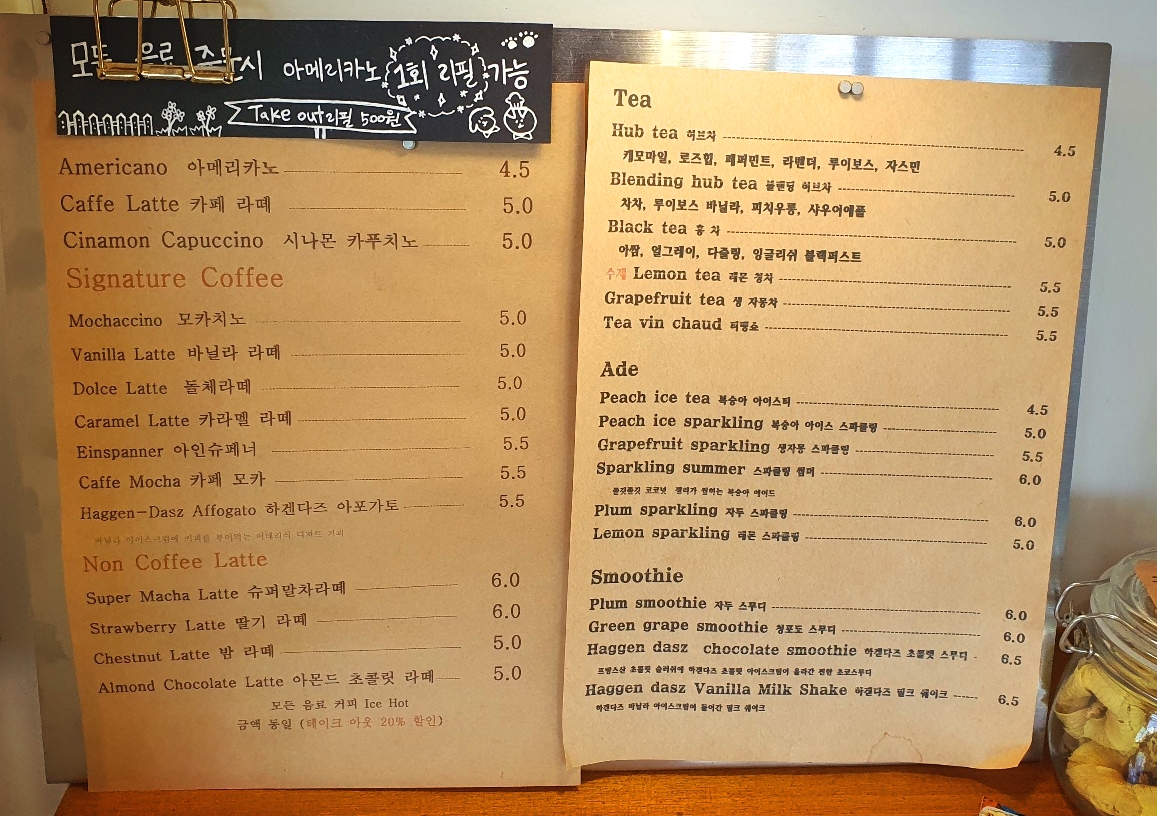 모든 음료 주문시 아메리카노 1회 리필 가능
Take out리필 500원
Americano 아메리카노 4.5
Caffe Latte 카페 라떼 5.0
Cinamon Capuccino 시나몬 카푸치노 5.0
Signature Coffee
Mochaccino 모카치노 5.0
Vanilla Latte 바닐라 라떼 5.0
Dolce Latte 돌체라떼 5.0
Caramel Latte 카라멜 라떼 5.0
Einspanner 아인슈페너 5.5
Caffe Mocha 카페 모카 5.5
Haggen-Dasz Affogato 하겐다즈 아포가토 5.5
바닐라 아이스크림에 커피를 부어먹는 이태리식 디저트 커피
Non Coffee Latte
Super Macha Latte 슈퍼말차라떼 6.0
Strawberry Latte 딸기 라떼 6.0
Chestnut Latte 밤 라떼 5.0
Almond Chocolate Latte 아몬드 초콜릿 라떼 5.0
모든 음료 커피 Ice Hot
금액 동일 (테이크 아웃 20% 할인)
Tea
Hub tea 허브차 4.5
캐모마일, 로즈힙, 페퍼민트, 라벤더, 루이보스, 자스민
Blending hub tea 블랜딩 허브차 5.0
차차, 루이보스 바닐라, 피치우롱, 샤우어애플
Black tea 홍 차 5.0
아쌈, 얼그레이, 다즐링, 잉글리쉬 블랙퍼스트
수제 Lemon tea 레몬 청차 5.5
Grapefruit tea 생 자몽차 5.5
Tea vin chaud 티뱅쇼 5.5
Ade
Peach ice tea 복숭아 아이스티 4.5
Peach ice sparkling 복숭아 아이스 스파클링 5.0
Grapefruit sparkling 생자몽 스파클링 5.5
Sparkling summer 스파클링 썸머 6.0
쫄깃쫄깃 코코넛 젤리가 씹히는 복숭아 에이드
Plum sparkling 자두 스파클링 6.0
Lemon sparkling 레몬 스파클링 5.0
Smoothie
Plum smoothie 자두 스무디 6.0
Green grape smoothie 청포도 스무디 6.0
Haggen dasz chocolate smoothie 하겐다즈 초콜렛 스무디 6.5
프랑스산 초콜릿 슬러쉬에 하겐다즈 초콜릿 아이스크림이 올라간 진한 초코스무디
Haggen dasz Vanilla Milk Shake 하겐다즈 밀크 쉐이크 6.5
하겐다즈 바닐라 아이스크림이 들어간 밀크 쉐이크